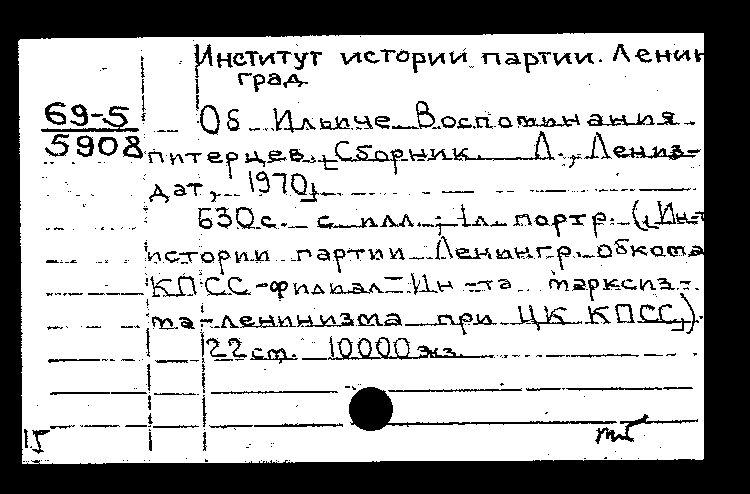 Институт истории партии. Ленин
град
69-5
5908
Об Ильиче. Воспоминания
питерцев. [Сборник. Л., Лениз-
дат, 1970]
630с. с илл.; 1л. портр. ([Ин-т
истории партии Ленингр. обкома
КПСС-филиал Ин-та марксиз-
ма-ленинизма при ЦК КПСС]).
22см. 10000экз.
15